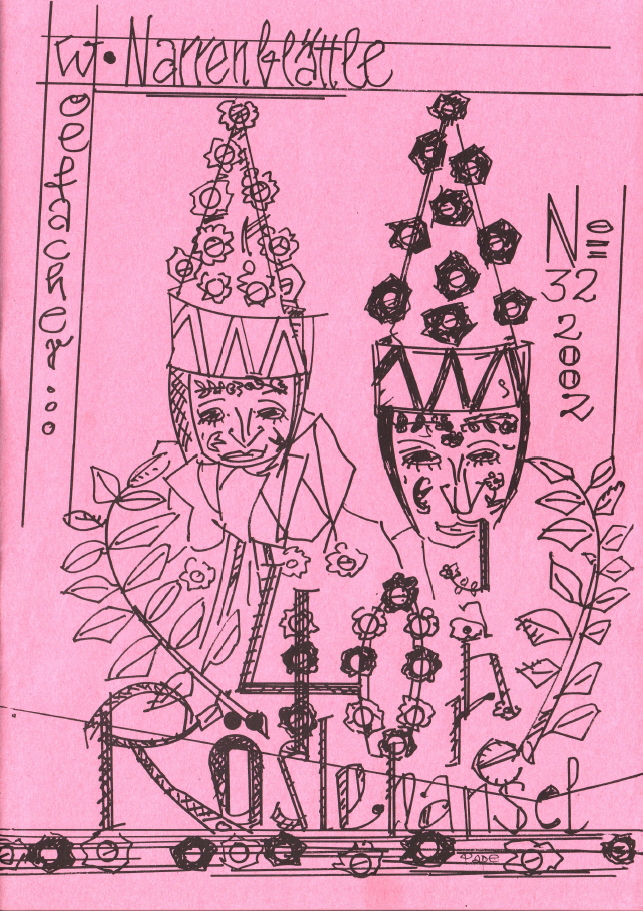 W. Narrenblättle
olfacher...
No
32
2002
40
Röslehansel
PADE